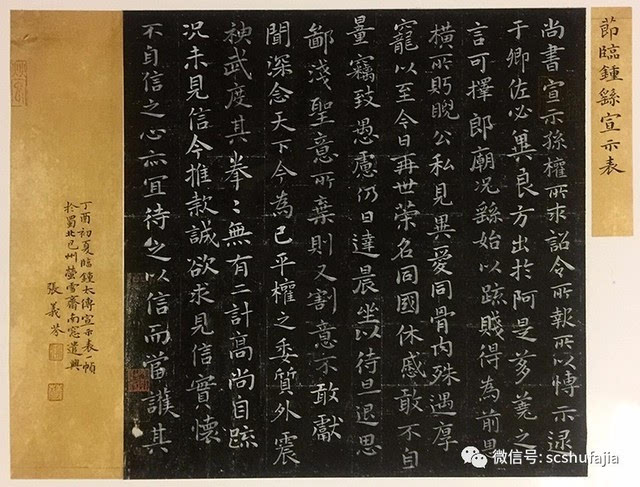 節臨鍾繇宣示表
尚書宣示孫權所求詔令所報所以博示逮
于卿佐必冀良方出於阿是芻蕘之
言可擇郎廟况繇始以疏賤得為前恩
橫所眄睨公私見異愛同骨肉殊遇厚
寵以至今日再世榮名同國休慼敢不自
量竊致愚慮仍日達晨坐以待旦退思
鄙淺聖意所棄則又割意不敢獻
聞深念天下今為已平權之委質外震
神武度其拳〻無有二計高尚自疏
况未見信今推款誠欲求見信實懷
不自信之心亦宜待之以信而當護其
丁酉初夏臨鍾太傅宣示表一幀
於蜀北巴州螢雪齋南窓遣興
張義岑
微信号: scshufajia